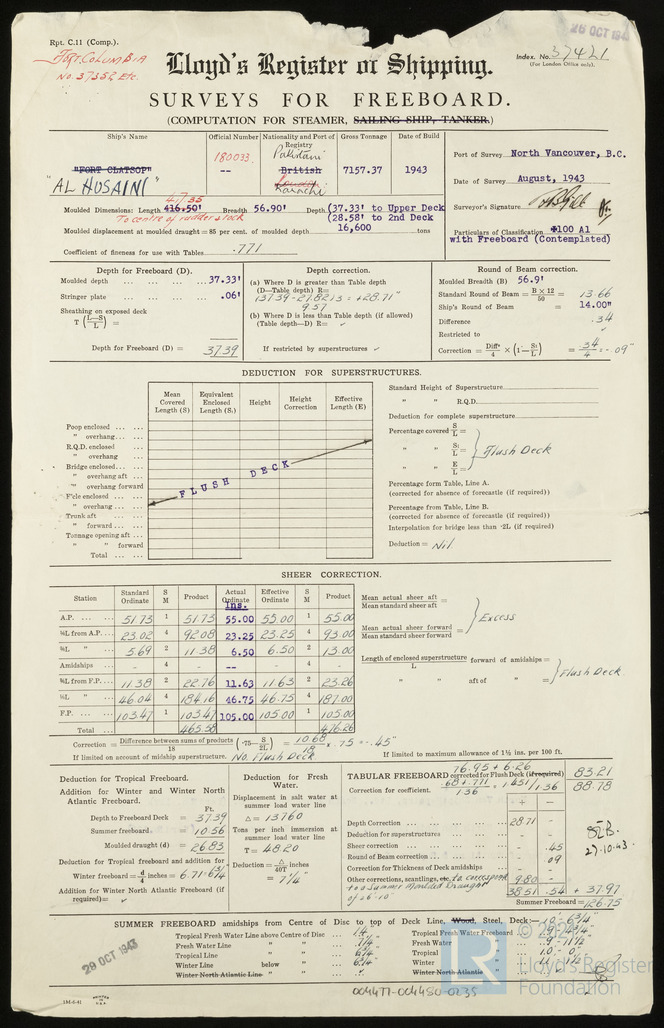 Rpt. C.11 (Comp.).
26 OCT 194
FORT COLUMBIA
No. 37352 Etc.
Index. No. 37421
(For London Office only).
Lloyd's Register of Shipping.
SURVEYS FOR FREEBOARD.
(COMPUTATION FOR STEAMER, SAILING SHIP, TANKER.)
Ship's Name
Official Number
Nationality and Port of Registry
Gross Tonnage
Date of Build
"FORT CLATSOP"
"AL HUSAINI"
180033.
--
Pakistani
British
London
Karachi
7157.37
1943
Port of Survey North Vancouver, B.C.
Date of Survey August, 1943
Surveyor's Signature
Particulars of Classification +100 A1
with Freeboard (Contemplated)
417.35
Moulded Dimensions: Length 416.50' Breadth 56.90' Depth (37.33' to Upper Deck
To centre of rudder stock
(28.58' to 2nd Deck
Moulded displacement at moulded draught = 85 per cent. of moulded depth 16,600 tons
Coefficient of fineness for use with Tables .771
Depth for Freeboard (D).
Moulded depth ... ... ... ... 37.33'
Stringer plate ... ... ... ... .06'
Sheathing on exposed deck
T (L—S/L) =
Depth for Freeboard (D) = 37.39
Depth correction.
(a) Where D is greater than Table depth
(D—Table depth) R=
(b) Where D is less than Table depth (if allowed)
(Table depth—D) R= ✓
If restricted by superstructures ✓
Round of Beam correction.
Moulded Breadth (B) 56.9'
Standard Round of Beam = B × 12/50 = 13.66
Ship's Round of Beam = 14.00"
Difference .34
Restricted to ✓
Correction = Diff/4 × (1—S₁/L) = .34/4 = -.09"
DEDUCTION FOR SUPERSTRUCTURES.
Mean Covered Length (S)
Equivalent Enclosed Length (S₁)
Height
Height Correction
Effective Length (E)
Poop enclosed ... ...
" overhang ... ...
R.Q.D. enclosed
" overhang
Bridge enclosed ... ...
" overhang aft ...
" overhang forward
F'cle enclosed ... ...
" overhang ... ...
Trunk aft ... ...
" forward ... ...
Tonnage opening aft ...
" " forward
Total ... ...
FLUSH DECK
Standard Height of Superstructure
" " R.Q.D.
Deduction for complete superstructure
Percentage covered S/L =
" " S₁/L =
" " E/L =
Flush Deck
Percentage form Table, Line A.
(corrected for absence of forecastle (if required))
Percentage from Table, Line B.
(corrected for absence of forecastle (if required))
Interpolation for bridge less than ·2L (if required)
Deduction = Nil.
SHEER CORRECTION.
Station
Standard Ordinate
S M
Product
Actual Ordinate
Ins.
Effective Ordinate
S M
Product
A.P. ... ... 51.73 1 51.73 55.00 55.00 1 55.00
⅙L from A.P. ... 23.02 4 92.08 23.25 23.25 4 93.00
⅓L " 5.69 2 11.38 6.50 6.50 2 13.00
Amidships - 4 - -- - 4 -
⅓L from F.P. ... 11.38 2 22.76 11.63 11.63 2 23.26
⅙L " 46.04 4 184.16 46.75 46.75 4 187.00
F.P. ... ... 103.47 1 103.47 105.00 105.00 1 105.00
Total ... 465.58 476.26
Mean actual sheer aft =
Mean standard sheer aft
Mean actual sheer forward =
Mean standard sheer forward
Excess
Length of enclosed superstructure/L forward of amidships =
" " aft of " =
Flush Deck
Correction = Difference between sums of products/18 (·75—S/2L) = 10.68/18 × .75 = -.45"
If limited on account of midship superstructure. No. Flush Deck
If limited to maximum allowance of 1½ ins. per 100 ft.
Deduction for Tropical Freeboard.
Addition for Winter and Winter North Atlantic Freeboard.
Ft.
Depth to Freeboard Deck = 37.39
Summer freeboard = 10.56
Moulded draught (d) = 26.83
Deduction for Tropical freeboard and addition for
Winter freeboard = d/4 inches = 6.71 = 6¾"
Addition for Winter North Atlantic Freeboard (if required) = ✓
Deduction for Fresh Water.
Displacement in salt water at summer load water line
Δ = 13760
Tons per inch immersion at summer load water line
T = 48.20
Deduction = Δ/40T inches
= 7¼"
76.95 + 6.26
TABULAR FREEBOARD corrected for Flush Deck (if required) 83.21
Correction for coefficient. .68 + .771/1.36 = 1.451/1.36 88.78
+ -
Depth Correction ... 28.71 -
Deduction for superstructures ... - -
Sheer correction ... - .45
Round of Beam correction ... - .09
Correction for Thickness of Deck amidships ... - -
Other corrections, scantlings, etc. to correspond to a Summer Moulded Draught of 26'-10" 9.80 -
38.51 .54 + 37.97
Summer Freeboard = 126.75
27.10.43.
SUMMER FREEBOARD amidships from Centre of Disc to top of Deck Line, Wood, Steel, Deck:— 10'- 6¾"
Tropical Fresh Water Line above Centre of Disc ...
Fresh Water Line " " ... 7¼"
Tropical Line " " ... 6¾"
Winter Line below " ... 6¾"
Winter North Atlantic Line " " ... ✓
Tropical Fresh Water Freeboard ...
Fresh Water " ... 9'- 11½"
Tropical " ... 10'- 0"
Winter " ... 11'- 1½"
Winter North Atlantic "
29 OCT 1943
1M-6-41
PRINTED IN U.S.A.
004477-004480-0235
LR
© 2021
Lloyd's Register
Foundation